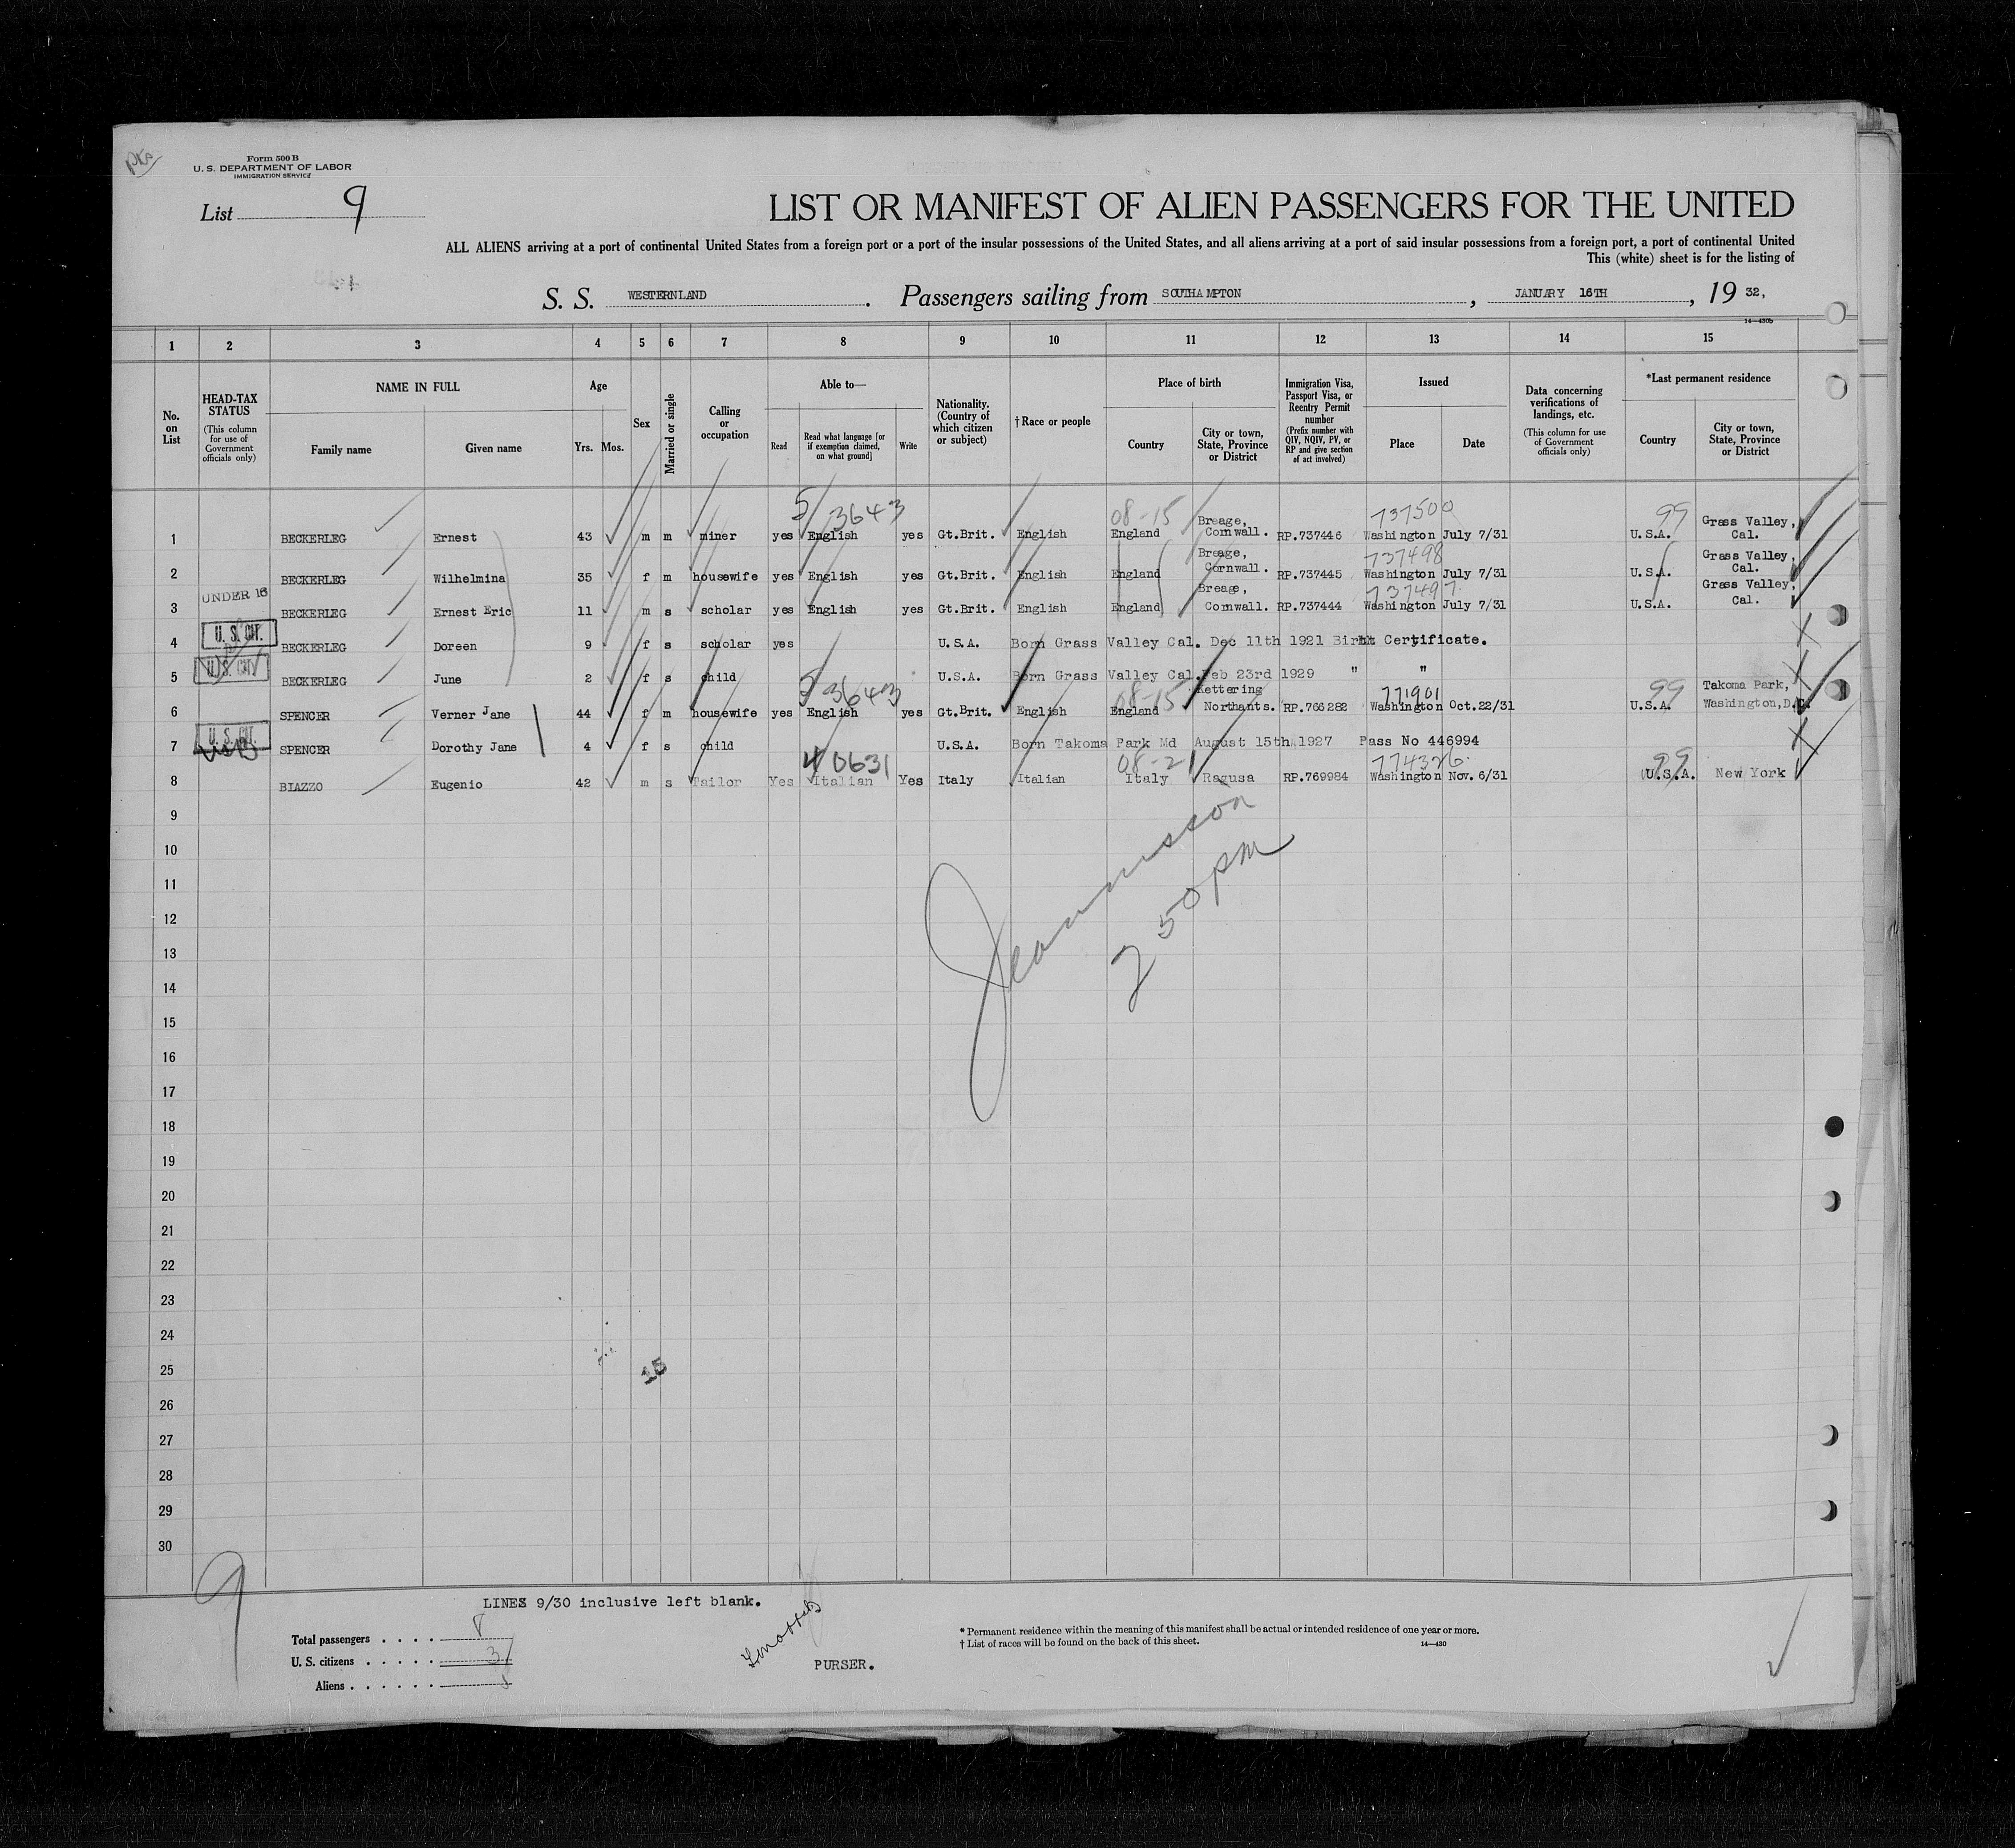 Form 500 B
U. S. DEPARTMENT OF LABOR
IMMIGRATION SERVICE
List 9
LIST OR MANIFEST OF ALIEN PASSENGERS FOR THE UNITED
ALL ALIENS arriving at a port of continental United States from a foreign port or a port of the insular possessions of the United States, and all aliens arriving at a port of said insular possessions from a foreign port, a port of continental United
This (white) sheet is for the listing of
S. S. WESTERNLAND. Passengers sailing from SOUTHAMPTON, JANUARY 16TH, 19 32,
14—430b
1 2 3 4 5 6 7 8 9 10 11 12 13 14 15
No. on List
HEAD-TAX STATUS (This column for use of Government officials only)
NAME IN FULL Family name Given name
Age Yrs. Mos.
Sex
Married or single
Calling or occupation
Able to— Read Read what language [or if exemption claimed, on what ground] Write
Nationality. (Country of which citizen or subject)
†Race or people
Place of birth Country City or town, State, Province or District
Immigration Visa, Passport Visa, or Reentry Permit number (Prefix number with QIV, NQIV, PV, or RP and give section of act involved)
Issued Place Date
Data concerning verifications of landings, etc. (This column for use of Government officials only)
*Last permanent residence Country City or town, State, Province or District
5/3643 08-15 737500 99
1 BECKERLEG Ernest 43 m m miner yes English yes Gt.Brit. English England Breage, Cornwall. RP.737446 Washington July 7/31 U.S.A. Grass Valley, Cal.
737498
2 BECKERLEG Wilhelmina 35 f m housewife yes English yes Gt.Brit. English England Breage, Cornwall. RP.737445 Washington July 7/31 U.S.A. Grass Valley, Cal.
UNDER 16 737497
3 BECKERLEG Ernest Eric 11 m s scholar yes English yes Gt.Brit. English England Breage, Cornwall. RP.737444 Washington July 7/31 U.S.A. Grass Valley, Cal.
U. S. CIT.
4 BECKERLEG Doreen 9 f s scholar yes U.S.A. Born Grass Valley Cal. Dec 11th 1921 Birth Certificate.
U. S. CIT.
5 BECKERLEG June 2 f s child U.S.A. Born Grass Valley Cal. Feb 23rd 1929 " "
5 3643 08-15 771901 99
6 SPENCER Verner Jane 44 f m housewife yes English yes Gt.Brit. English England Kettering Northants. RP.766282 Washington Oct.22/31 U.S.A. Takoma Park, Washington, D.C.
U. S. CIT.
7 SPENCER Dorothy Jane 4 f s child U.S.A. Born Takoma Park Md August 15th 1927 Pass No 446994
4 0631 08-21 774326 99
8 BIAZZO Eugenio 42 m s Tailor Yes Italian Yes Italy Italian Italy Ragusa RP.769984 Washington Nov. 6/31 U.S.A. New York
9
10
11
12
13
14
15
16
17
18
19
20
21
22
23
24
25
26
27
28
29
30
2 50 pm
9
LINES 9/30 inclusive left blank.
Total passengers . . . . 8
U. S. citizens . . . . . 3
Aliens . . . . . . 5
PURSER.
* Permanent residence within the meaning of this manifest shall be actual or intended residence of one year or more.
† List of races will be found on the back of this sheet.
14—430